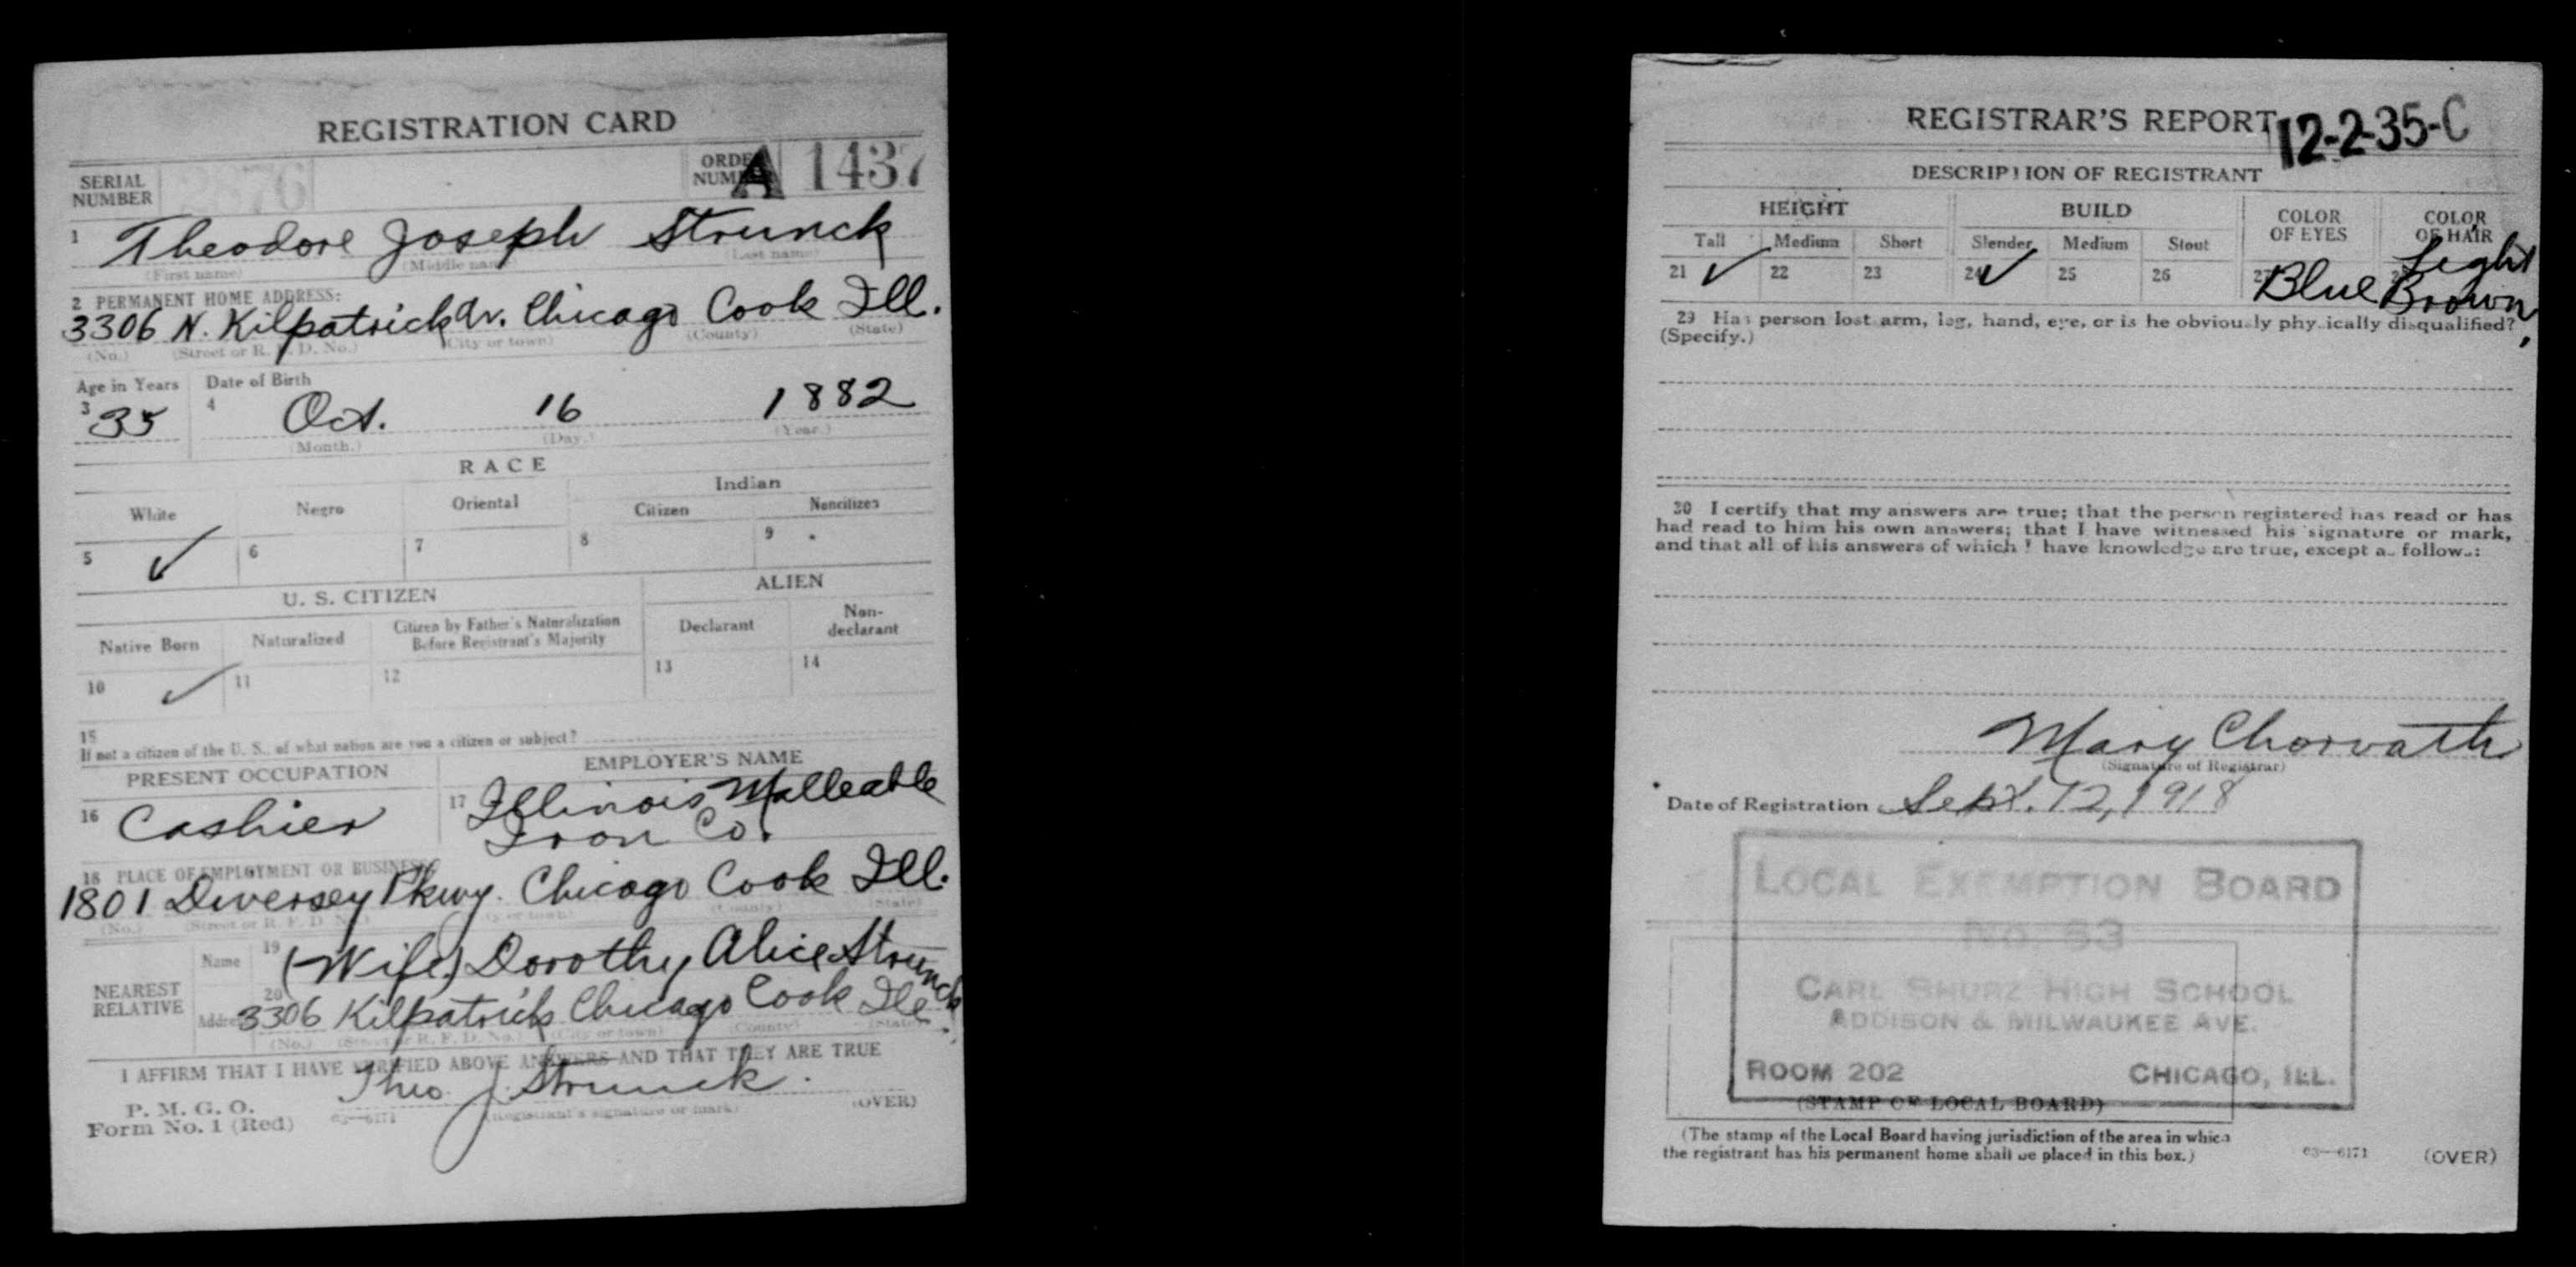 REGISTRATION CARD
SERIAL NUMBER 2876 ORDER NUMBER A 1437
1 Theodore Joseph Strunck
(First name) (Middle name) (Last name)
2 PERMANENT HOME ADDRESS:
3306 N. Kilpatrick Av. Chicago Cook Ill.
(No.) (Street or R. F. D. No.) (City or town) (County) (State)
Age in Years Date of Birth
3 35 4 Oct. 16 1882
(Month.) (Day.) (Year.)
RACE
White Negro Oriental Indian
Citizen Noncitizen
5 ✓ 6 7 8 9
U. S. CITIZEN ALIEN
Native Born Naturalized Citizen by Father's Naturalization Before Registrant's Majority Declarant Non-declarant
10 ✓ 11 12 13 14
15
If not a citizen of the U. S., of what nation are you a citizen or subject?
PRESENT OCCUPATION EMPLOYER'S NAME
16 Cashier 17 Illinois Malleable
Iron Co.
18 PLACE OF EMPLOYMENT OR BUSINESS:
1801 Diversey Pkwy. Chicago Cook Ill.
(No.) (Street or R. F. D. No.) (City or town) (County) (State)
NEAREST RELATIVE
Name 19 (Wife) Dorothy Alice Strunck
Address 20 3306 Kilpatrick Chicago Cook Ill.
(No.) (Street or R. F. D. No.) (City or town) (County) (State)
I AFFIRM THAT I HAVE VERIFIED ABOVE ANSWERS AND THAT THEY ARE TRUE
Theo. J. Strunck.
P. M. G. O.
Form No. 1 (Red) 03—6171 (Registrant's signature or mark) (OVER)
REGISTRAR'S REPORT 12-2-35-C
DESCRIPTION OF REGISTRANT
HEIGHT BUILD COLOR OF EYES COLOR OF HAIR
Tall Medium Short Slender Medium Stout
21 ✓ 22 23 24 ✓ 25 26 27 Blue Light Brown
29 Has person lost arm, leg, hand, eye, or is he obviously physically disqualified?
(Specify.)
30 I certify that my answers are true; that the person registered has read or has
had read to him his own answers; that I have witnessed his signature or mark,
and that all of his answers of which I have knowledge are true, except as follows:
Mary Chorvath
(Signature of Registrar)
Date of Registration Sept. 12, 1918
LOCAL EXEMPTION BOARD
No. 53
CARL SHURZ HIGH SCHOOL
ADDISON & MILWAUKEE AVE.
ROOM 202 CHICAGO, ILL.
(STAMP OF LOCAL BOARD)
(The stamp of the Local Board having jurisdiction of the area in which
the registrant has his permanent home shall be placed in this box.)
03—6171 (OVER)